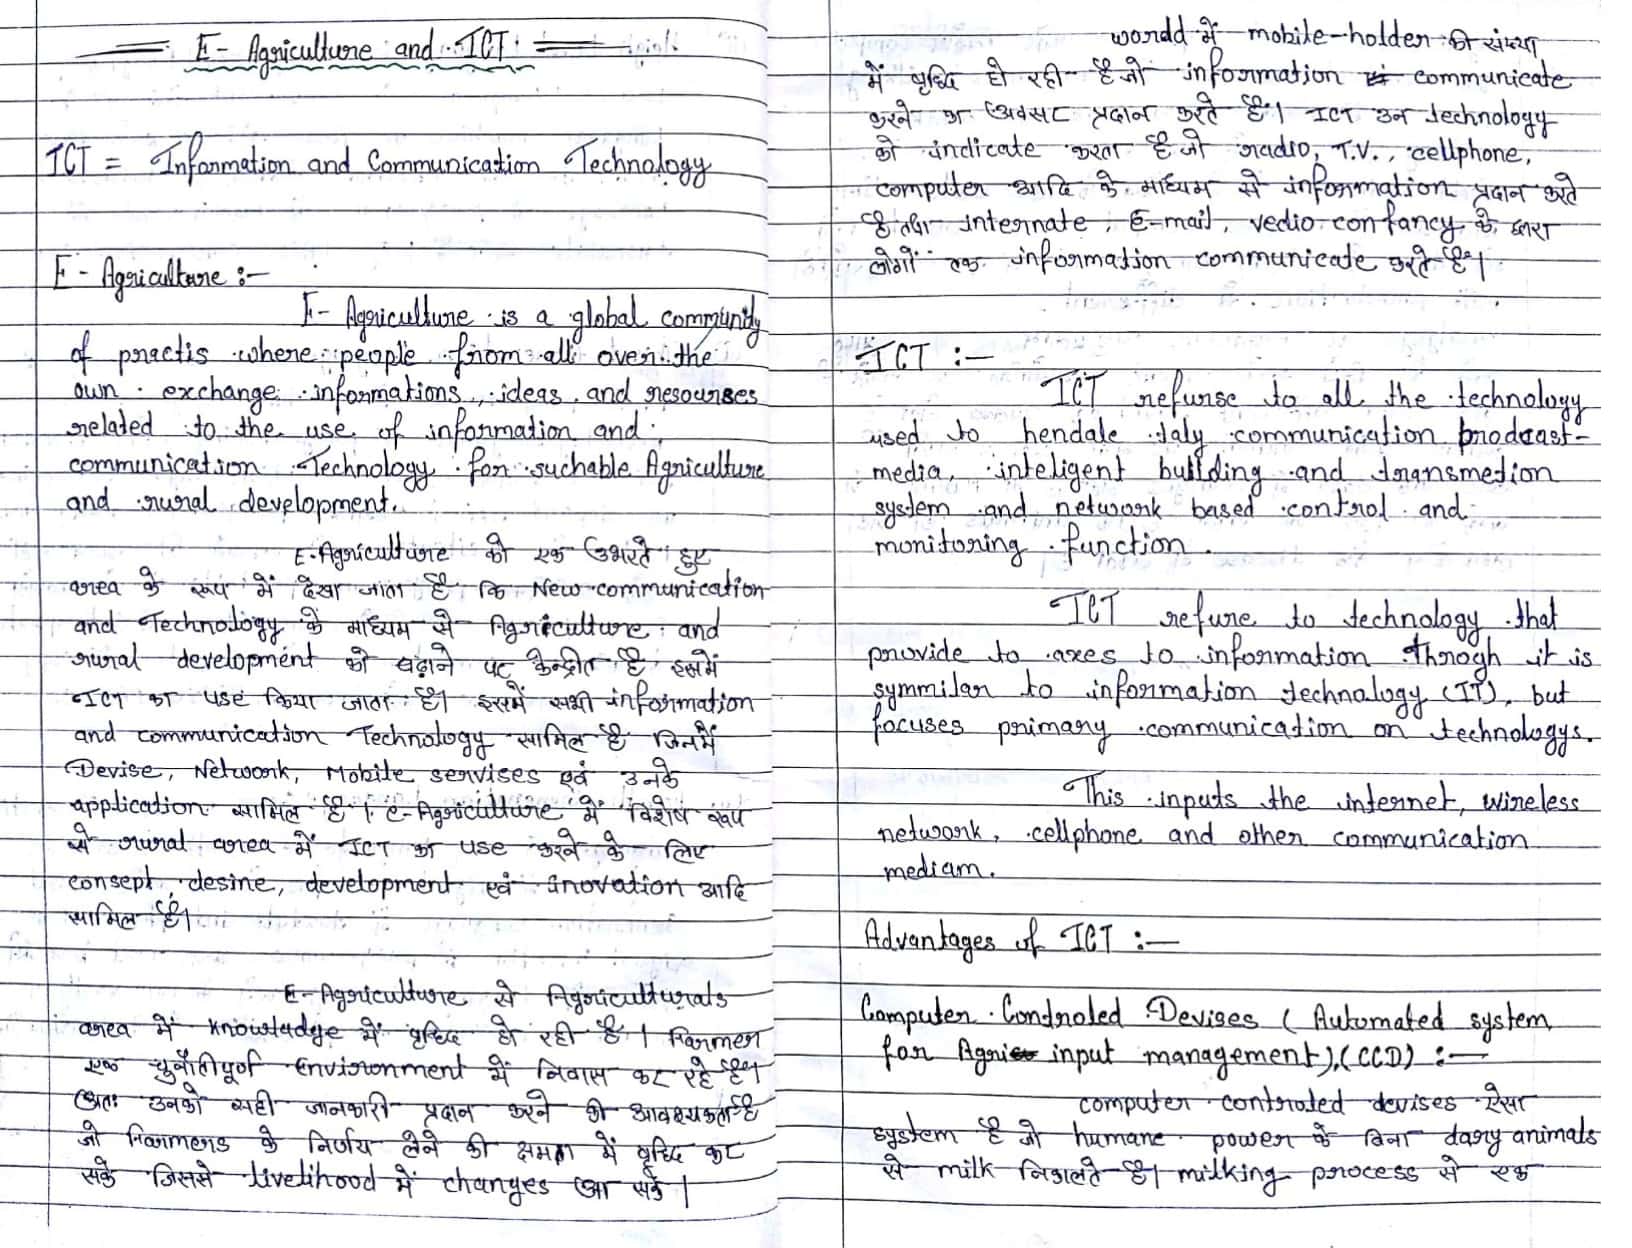 E- Agriculture and ICT
ICT = Information and Communication Technology
E- Agriculture :-
E- Agriculture is a global community
of practis where people from all over the
own exchange informations, ideas and resourses
related to the use of information and
communication Technology for suchable Agriculture
and rural development.
E-Agriculture को एक उभरते हुए
area के रूप में देखा जाता है कि New communication
and Technology के माध्यम से Agriculture and
rural development को बढ़ाने पर केन्द्रीत है इसमें
ICT का use किया जाता है। इसमें सभी information
and communication Technology सामिल है जिनमें
Devise, Network, Mobile servises एवं उनके
application सामिल है। E-Agriculture में विशेष रूप
से rural area में ICT का use करने के लिए
consept, desine, development एवं inovation आदि
सामिल है।
E-Agriculture से Agriculturals
area में knowladge में वृध्दि हो रही है। Farmer
एक चुनौतीपूर्ण Environment में निवास कर रहे है।
अतः उनको सही जानकारी प्रदान करने की आवश्यकता है
जो Farmers के निर्णय लेने की क्षमता में वृध्दि कर
सके जिससे livelihood में changes आ सके।
wordd में mobile-holder की संख्या
में वृध्दि हो रही है जो information communicate
करने का अवसर प्रदान करते है। ICT उन technology
को indicate करता है जो radio, T.V., cellphone,
computer आदि के माध्यम से information प्रदान करते
है तथा internate, E-mail, vedio confancy के द्वारा
लोगों तक information communicate करते है।
ICT :-
ICT refurse to all the technology
used to hendale taly communication brodcast-
media, inteligent building and transmetion
system and network based control and
monitoring function.
ICT refure to technology that
provide to axes to information throgh it is
symmilar to information technology (IT), but
focuses primary communication on technologys.
This inputs the internet, wireless
network, cellphone and other communication
mediam.
Advantages of ICT :-
Computer Controled Devises (Automated system
for Agri input management),(CCD) :-
computer controled devises ऐसा
system है जो humane power के बिना dary animals
से milk निकालते है। milking process से एक